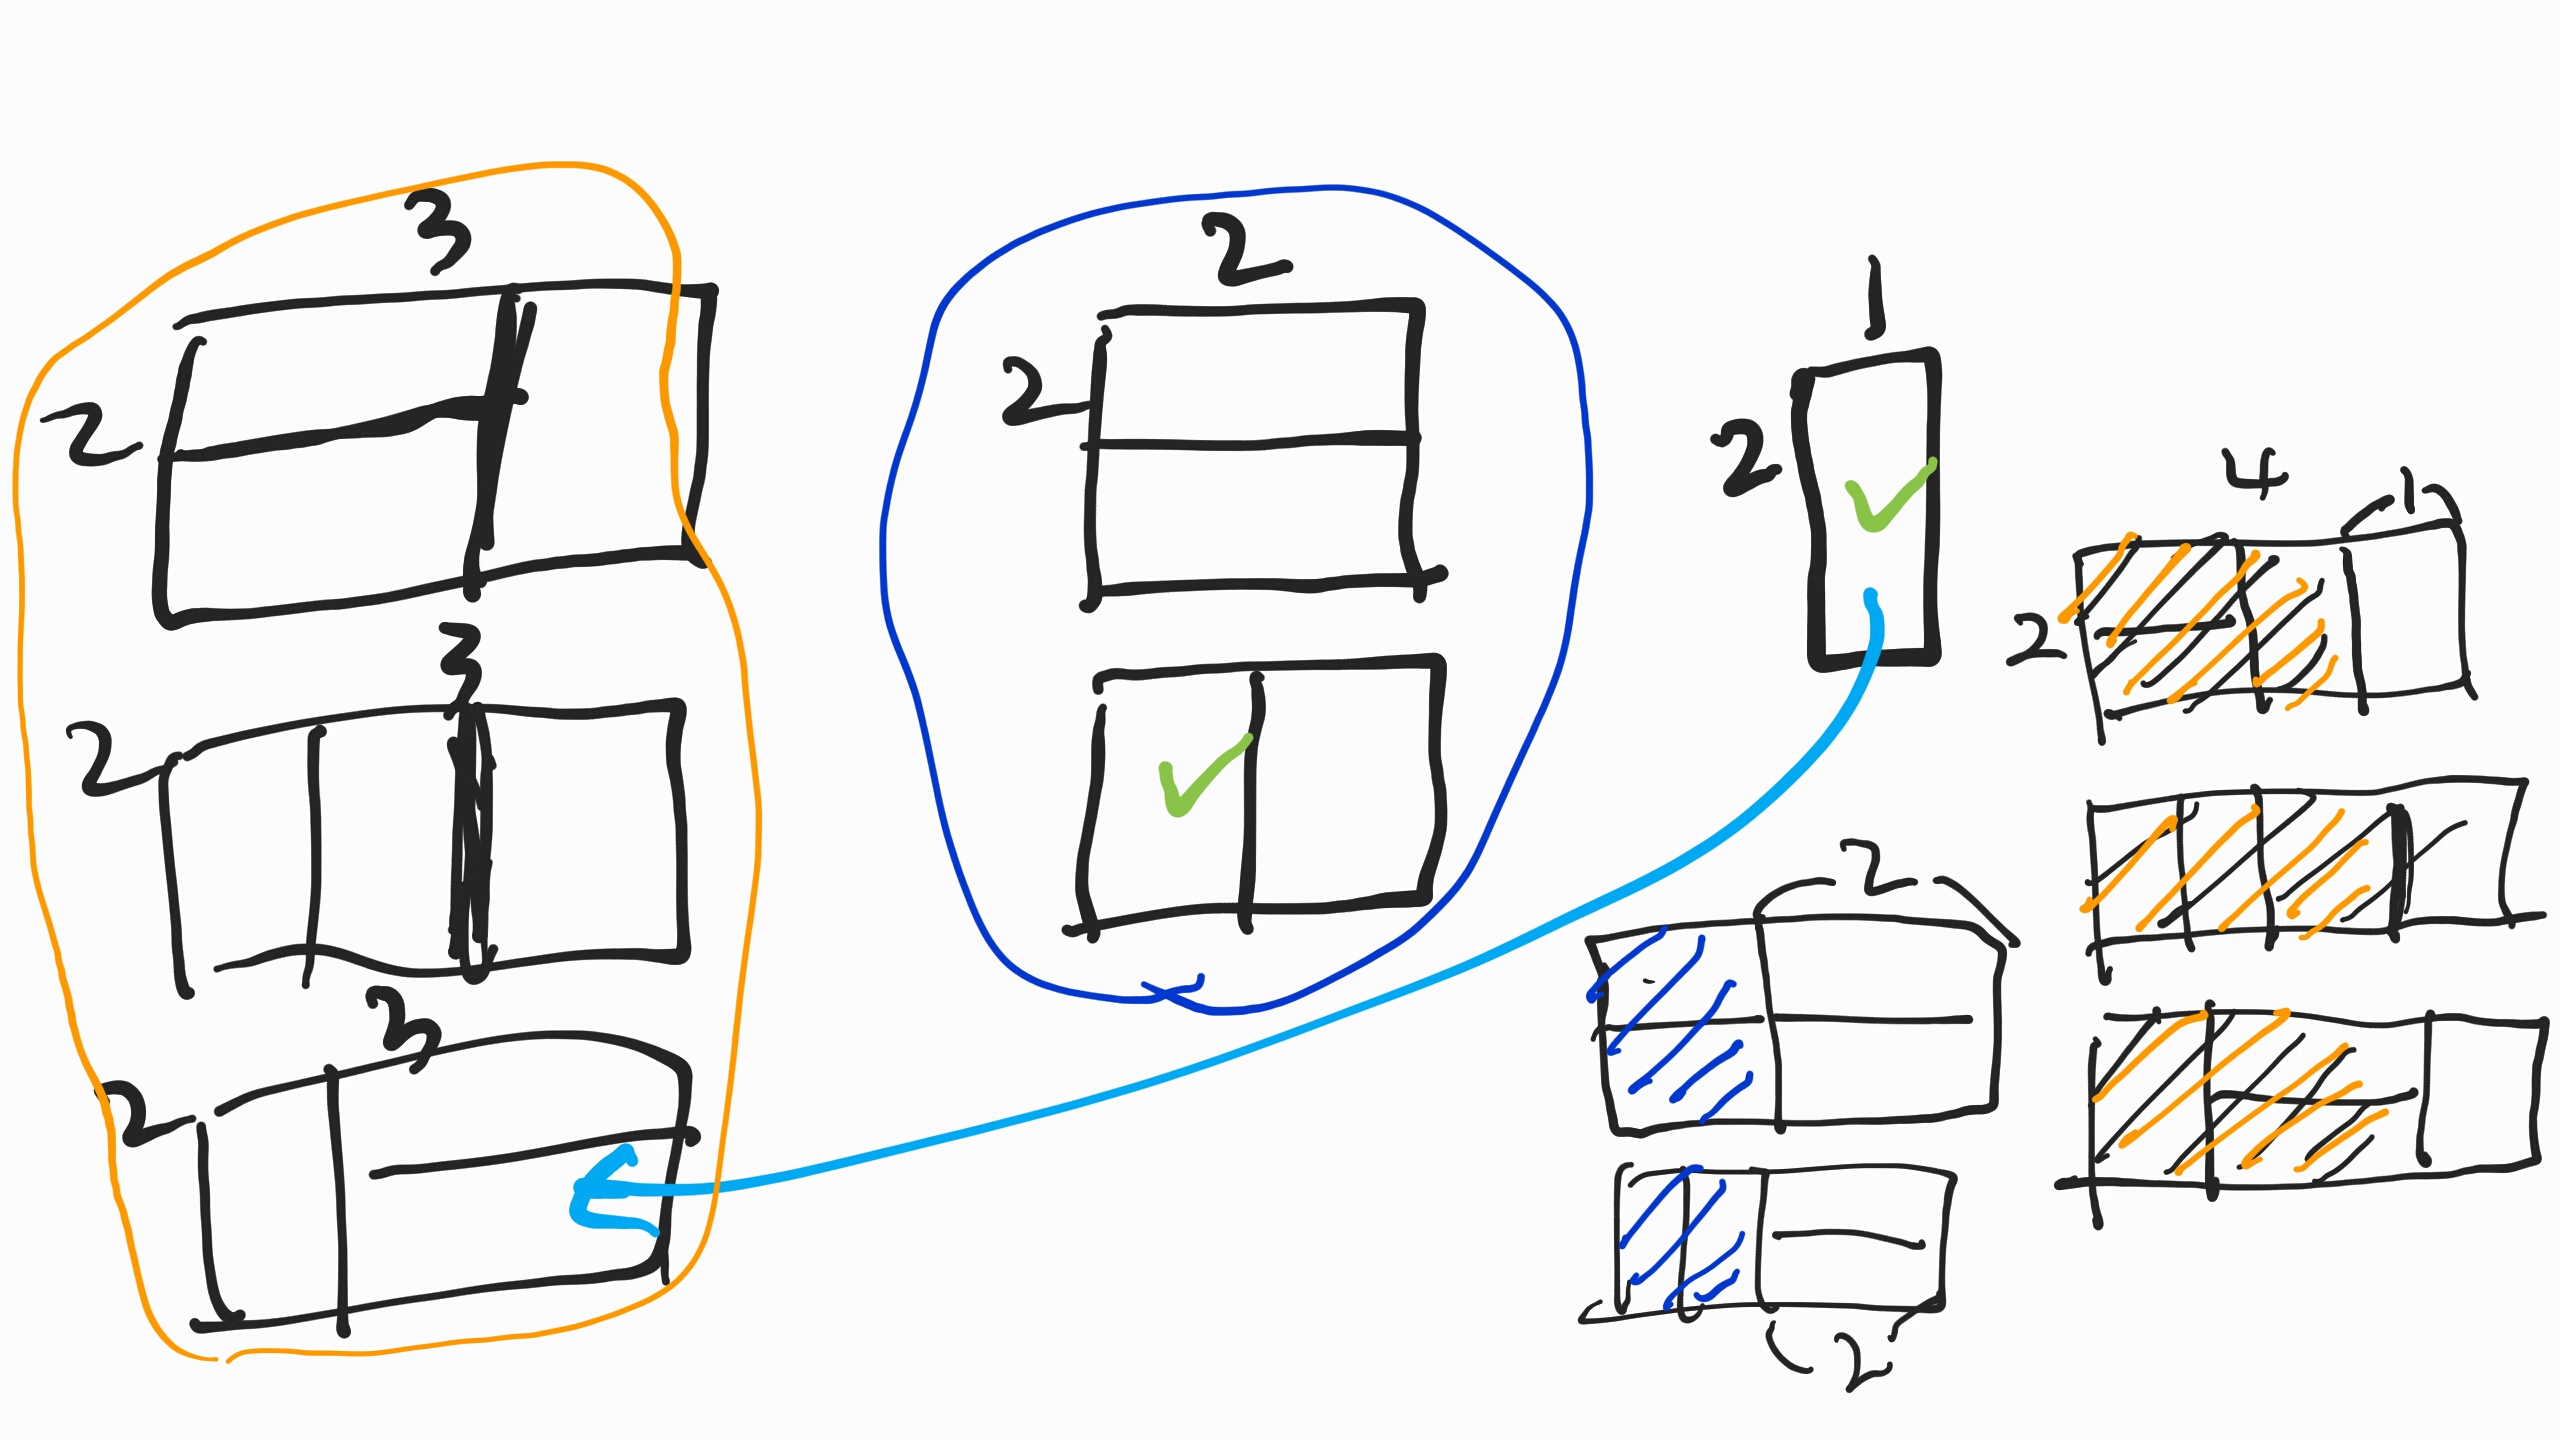 3
2
3
2
3
2
2
2
1
2
4
1
2
2
2